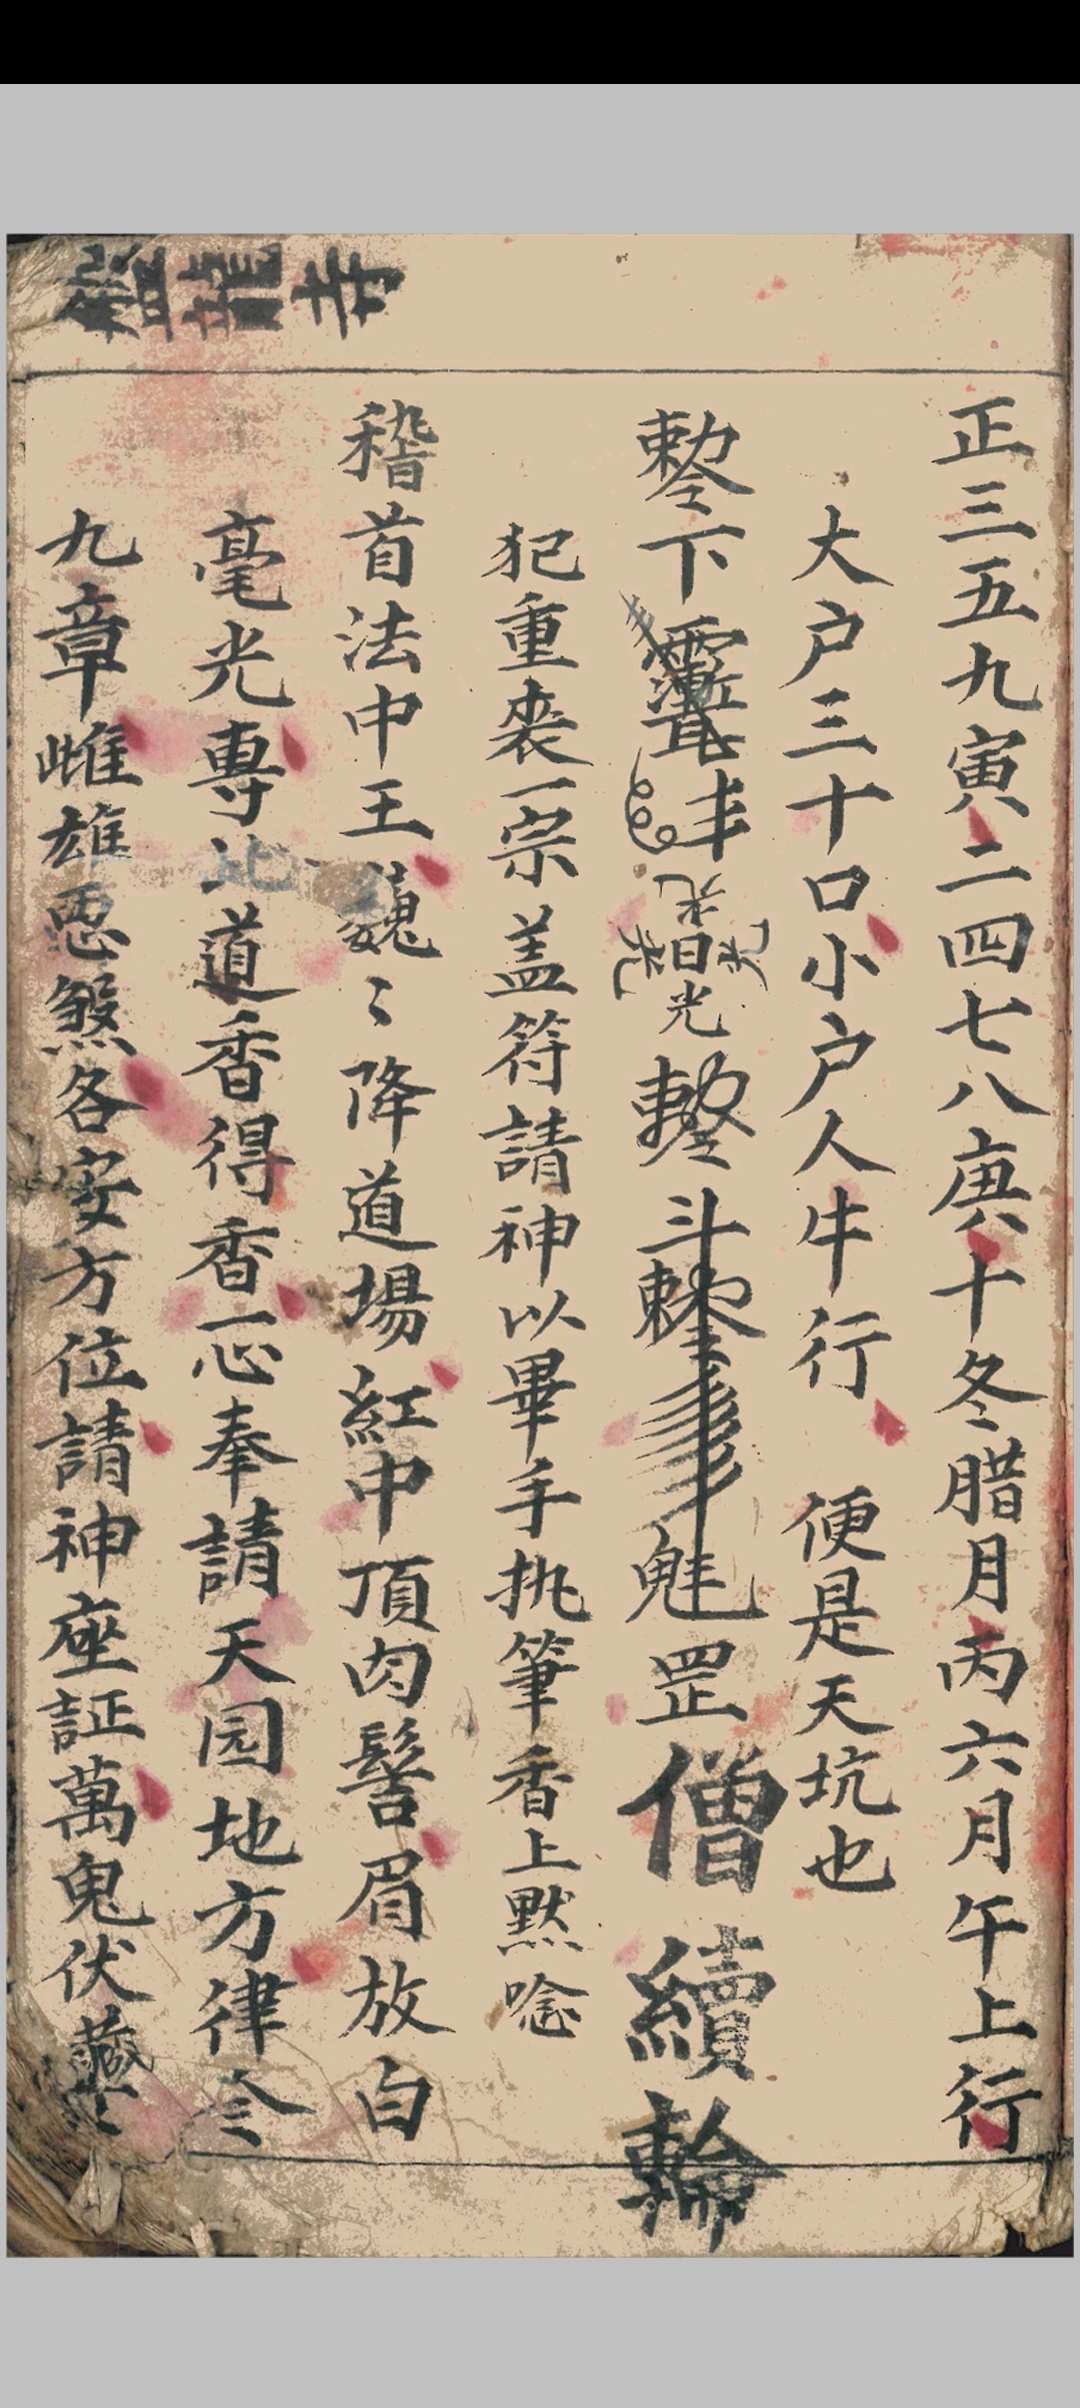 正三五九寅二四七八庚十冬腊月丙六月午上行
大户三十口小户人牛行 便是天坑也
下斗魁罡僧續輪
犯重喪一宗盖符請神以畢手执筆香上默唸
稽首法中王巍〻降道場紅中頂肉髻眉放白
毫光專此道香得香一心奉請天园地方律令
九章雌雄恶煞各安方位請神座証萬鬼伏藏